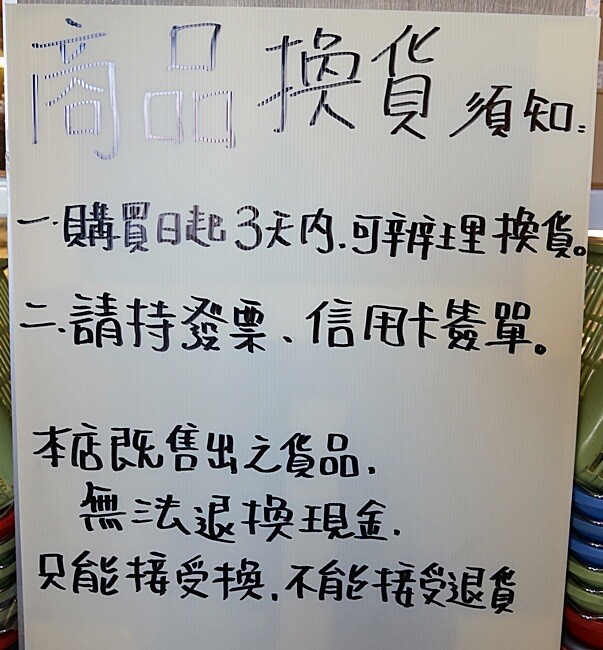 商品換貨須知:
一.購買日起3天内.可辦理換貨。
二.請持發票、信用卡簽單。
本店既售出之貨品.
無法退換現金.
只能接受換.不能接受退貨